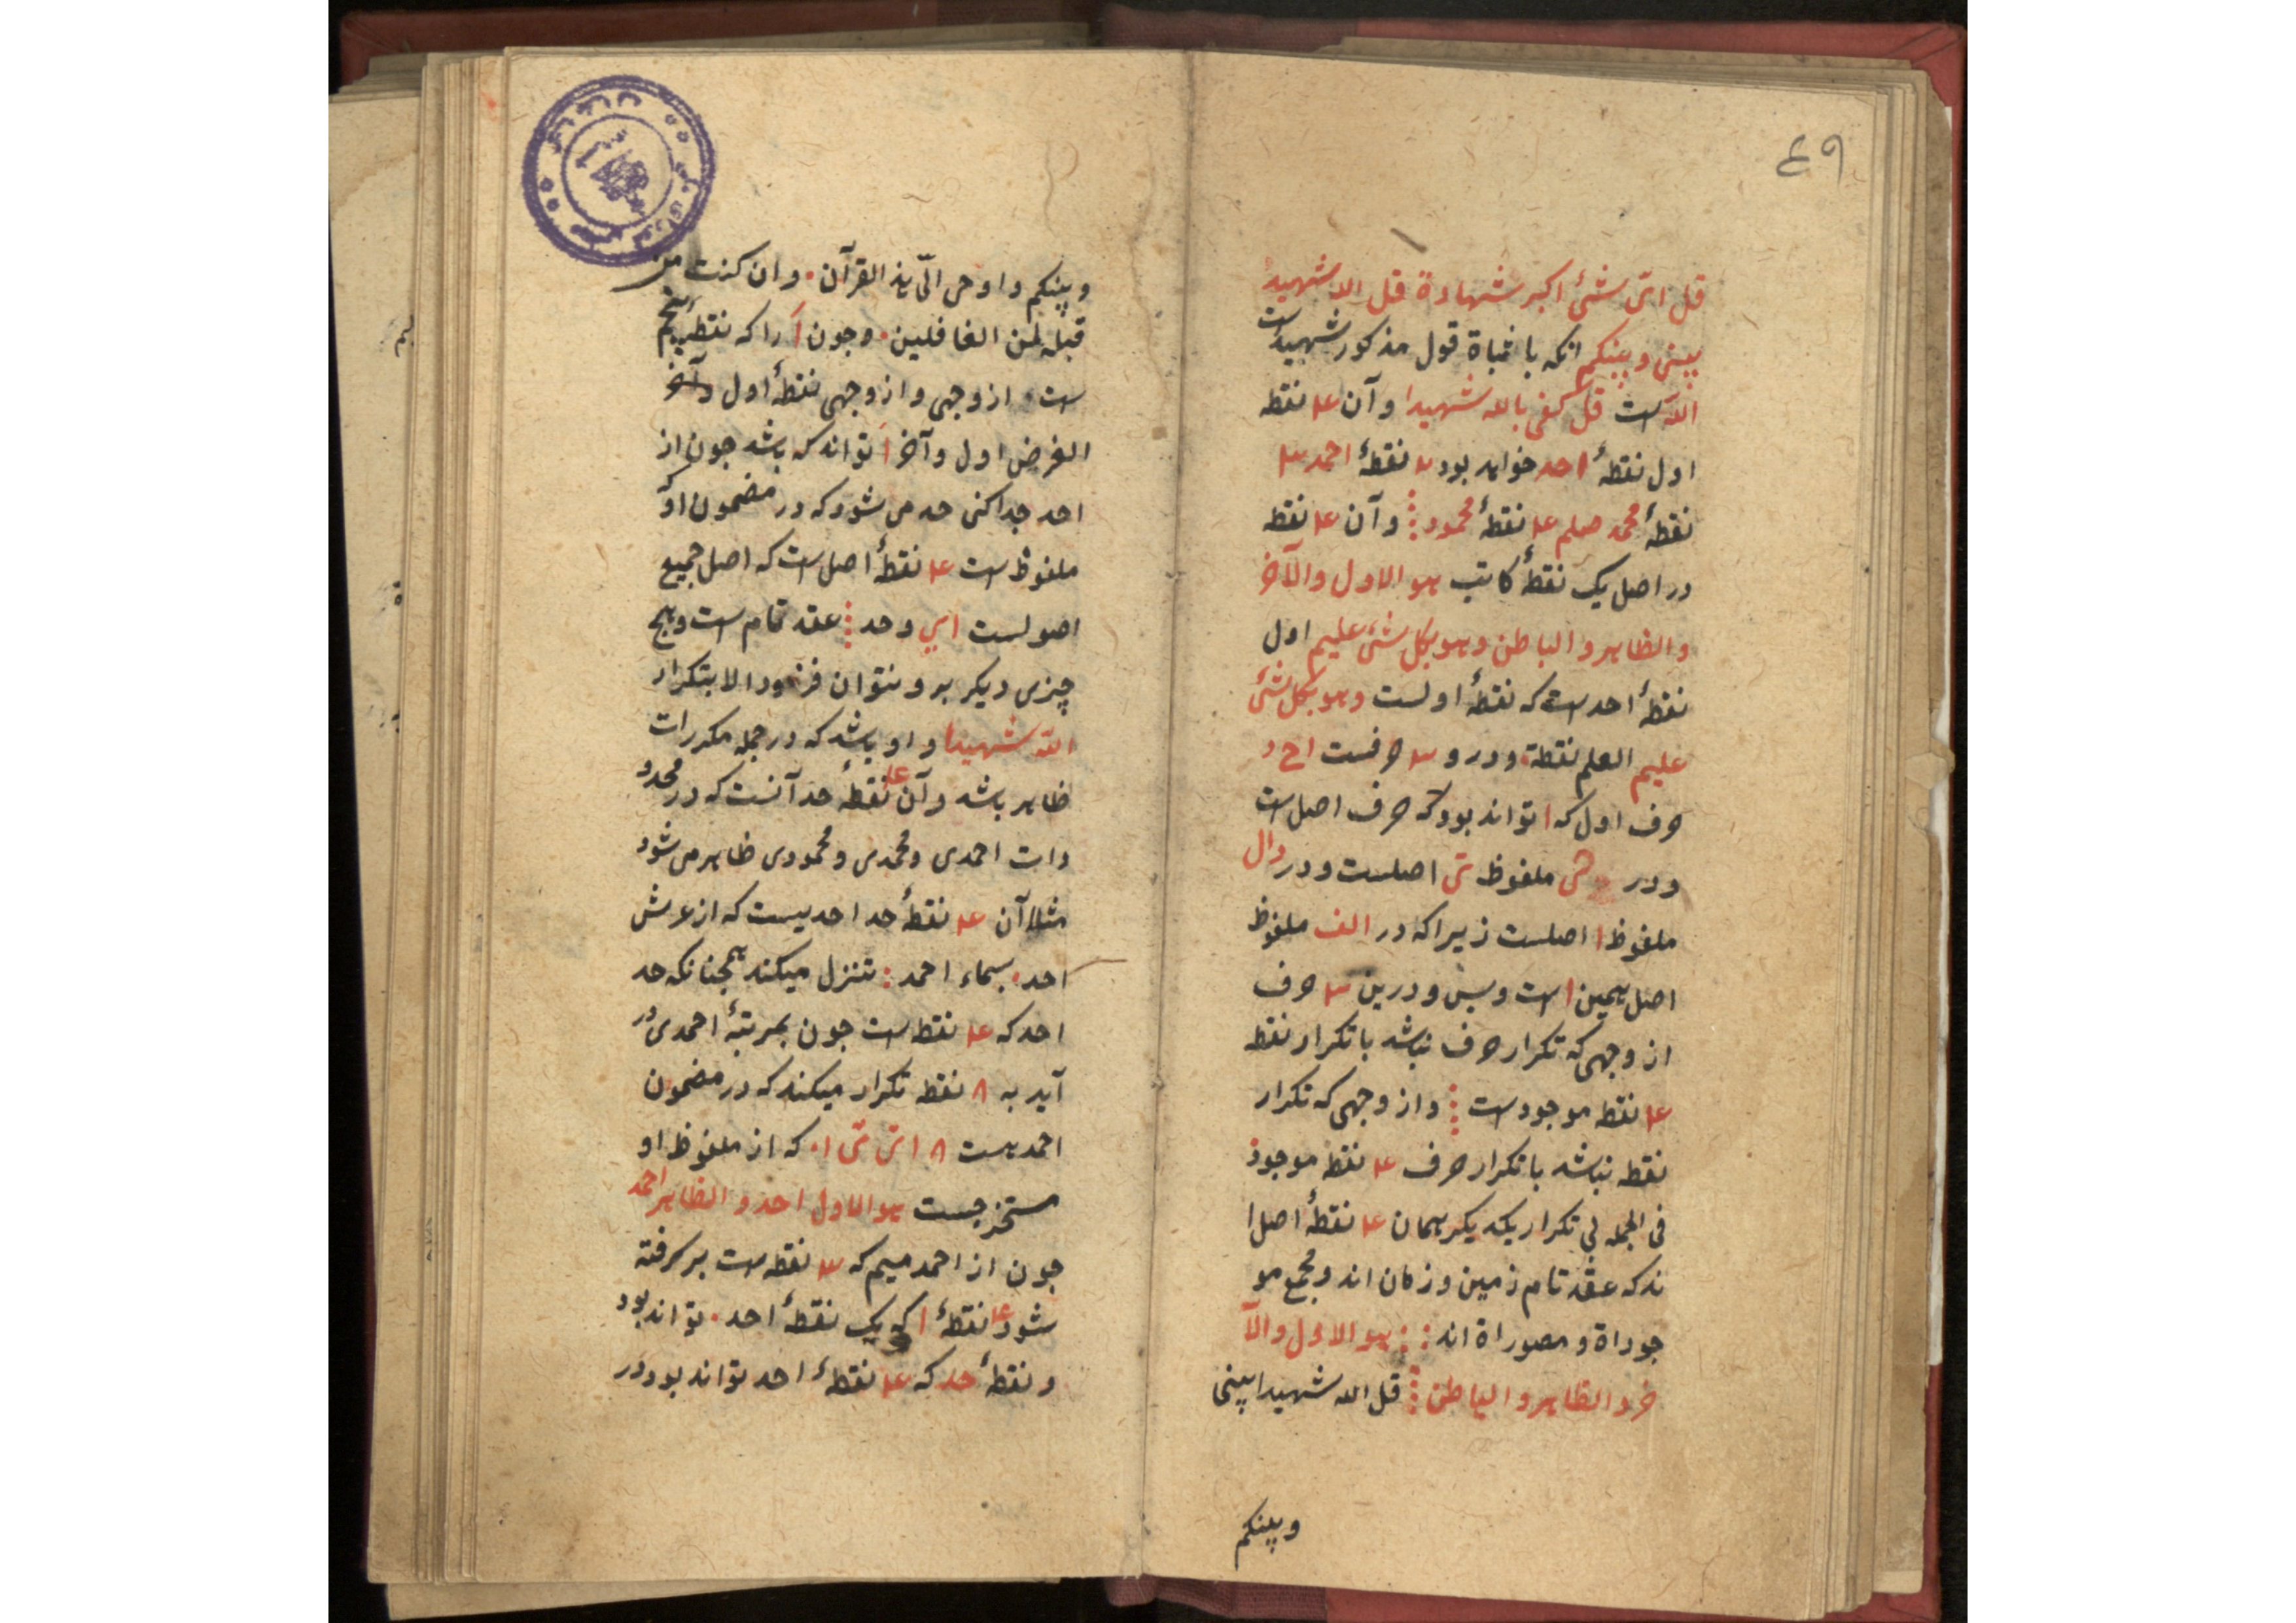 ٤٩
قل ای شئ اکبر شهادة قل الله شهید
بینی و بینکم انکه باثباة قول مذکور شهیدست
الله است قل کفی بالله شهیدا و آن ۴ نقطه
اول نقطهٔ احد خواهد بود ۲ نقطهٔ احمد ۳
نقطهٔ محمد صلم ۴ نقطهٔ محمود و آن ۴ نقطه
در اصل یک نقطهٔ کاتب هو الاول والآخر
والظاهر و الباطن وهو بکل شئ علیم اول
نقطهٔ احد است که نقطهٔ اولست وهو بکل شئ
علیم العلم نقطة و درو ۳ حرفست ا ح د
حرف اول که ا تواند بود که حرف اصل است
و در ملفوظ اصلست و در دال
ملفوظ ا اصلست زیرا که در الف ملفوظ
اصل همین ا است و بس و درین ۳ حرف
از وجهی که تکرار حرف نباشد با تکرار نقط
۴ نقطه موجودست و از وجهی که تکرار
نقطه نباشد با تکرار حرف ۴ نقطه موجود
فی الجمله بی تکرار یکدیکر همان ۴ نقطهٔ اصل ا
ند که عقد تمام زمین و زمان اند و مجمع مو
جوداة و مصوراة اند هو الاول والآ
خر و الظاهر و الباطن قل الله شهیدا بینی
وبینکم
وبینکم و اوحی الیّ هذ القرآن و ان کنت من
قبله لمن الغافلین و جون ا را که نقطهٔ پنجم
ست از وجهی و از وجهی نقطهٔ اول و آخر
الغرض اول و آخر ا تواند که باشد جون از
احد جدا کنی حد می شود که در مضمون او که
ملفوظ است ۴ نقطهٔ اصل است که اصل جمیع
اصولست ای وحد عقد تمام است و هیچ
چیزی دیکر برو نتوان فزود الا بتکرار
الله شهیدا و او باشد که در جمله مکررات
ظاهر باشد و آن ۴ نقطهٔ حد آنست که در محدو
دات احمدی و محمدی و محمودی ظاهر می شود
مثلا آن ۴ نقطهٔ حد احدیست که از عرش
احد بسماء احمد تنزل میکند همجنانکه حد
احد که ۴ نقط است جون بمرتبهٔ احمدی در
آید به ۸ نقطه تکرار میکند که در مضمون
احمد هست ۸ که از ملفوظ او
مستخرجست هو الاول احد و الظاهر احمد
جون از احمد میم که ۳ نقطه ست برگرفته
شود ۴ نقطهٔ ا که یک نقطهٔ احد تواند بود
و نقطهٔ حد که ۴ نقطهٔ احد تواند بود در